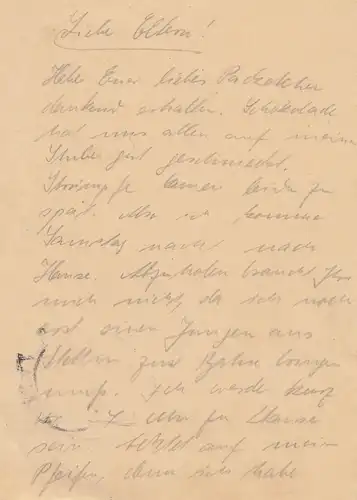 Liebe Eltern!
Habe Euer liebes Packetchen
dankend erhalten. Schokolade
hat uns allen auf meiner
Stube gut geschmeckt.
Strümpfe kamen leider zu
spät. Also ich komme
Samstag nacht nach
Hause. Abzuholen braucht Ihr
mich nicht, da ich noch
erst einen Jungen aus
Stettin zur Bahn bringen
muß. Ich werde kurz
Uhr zu Hause
sein auf mein
Pfeifen, denn ich habe